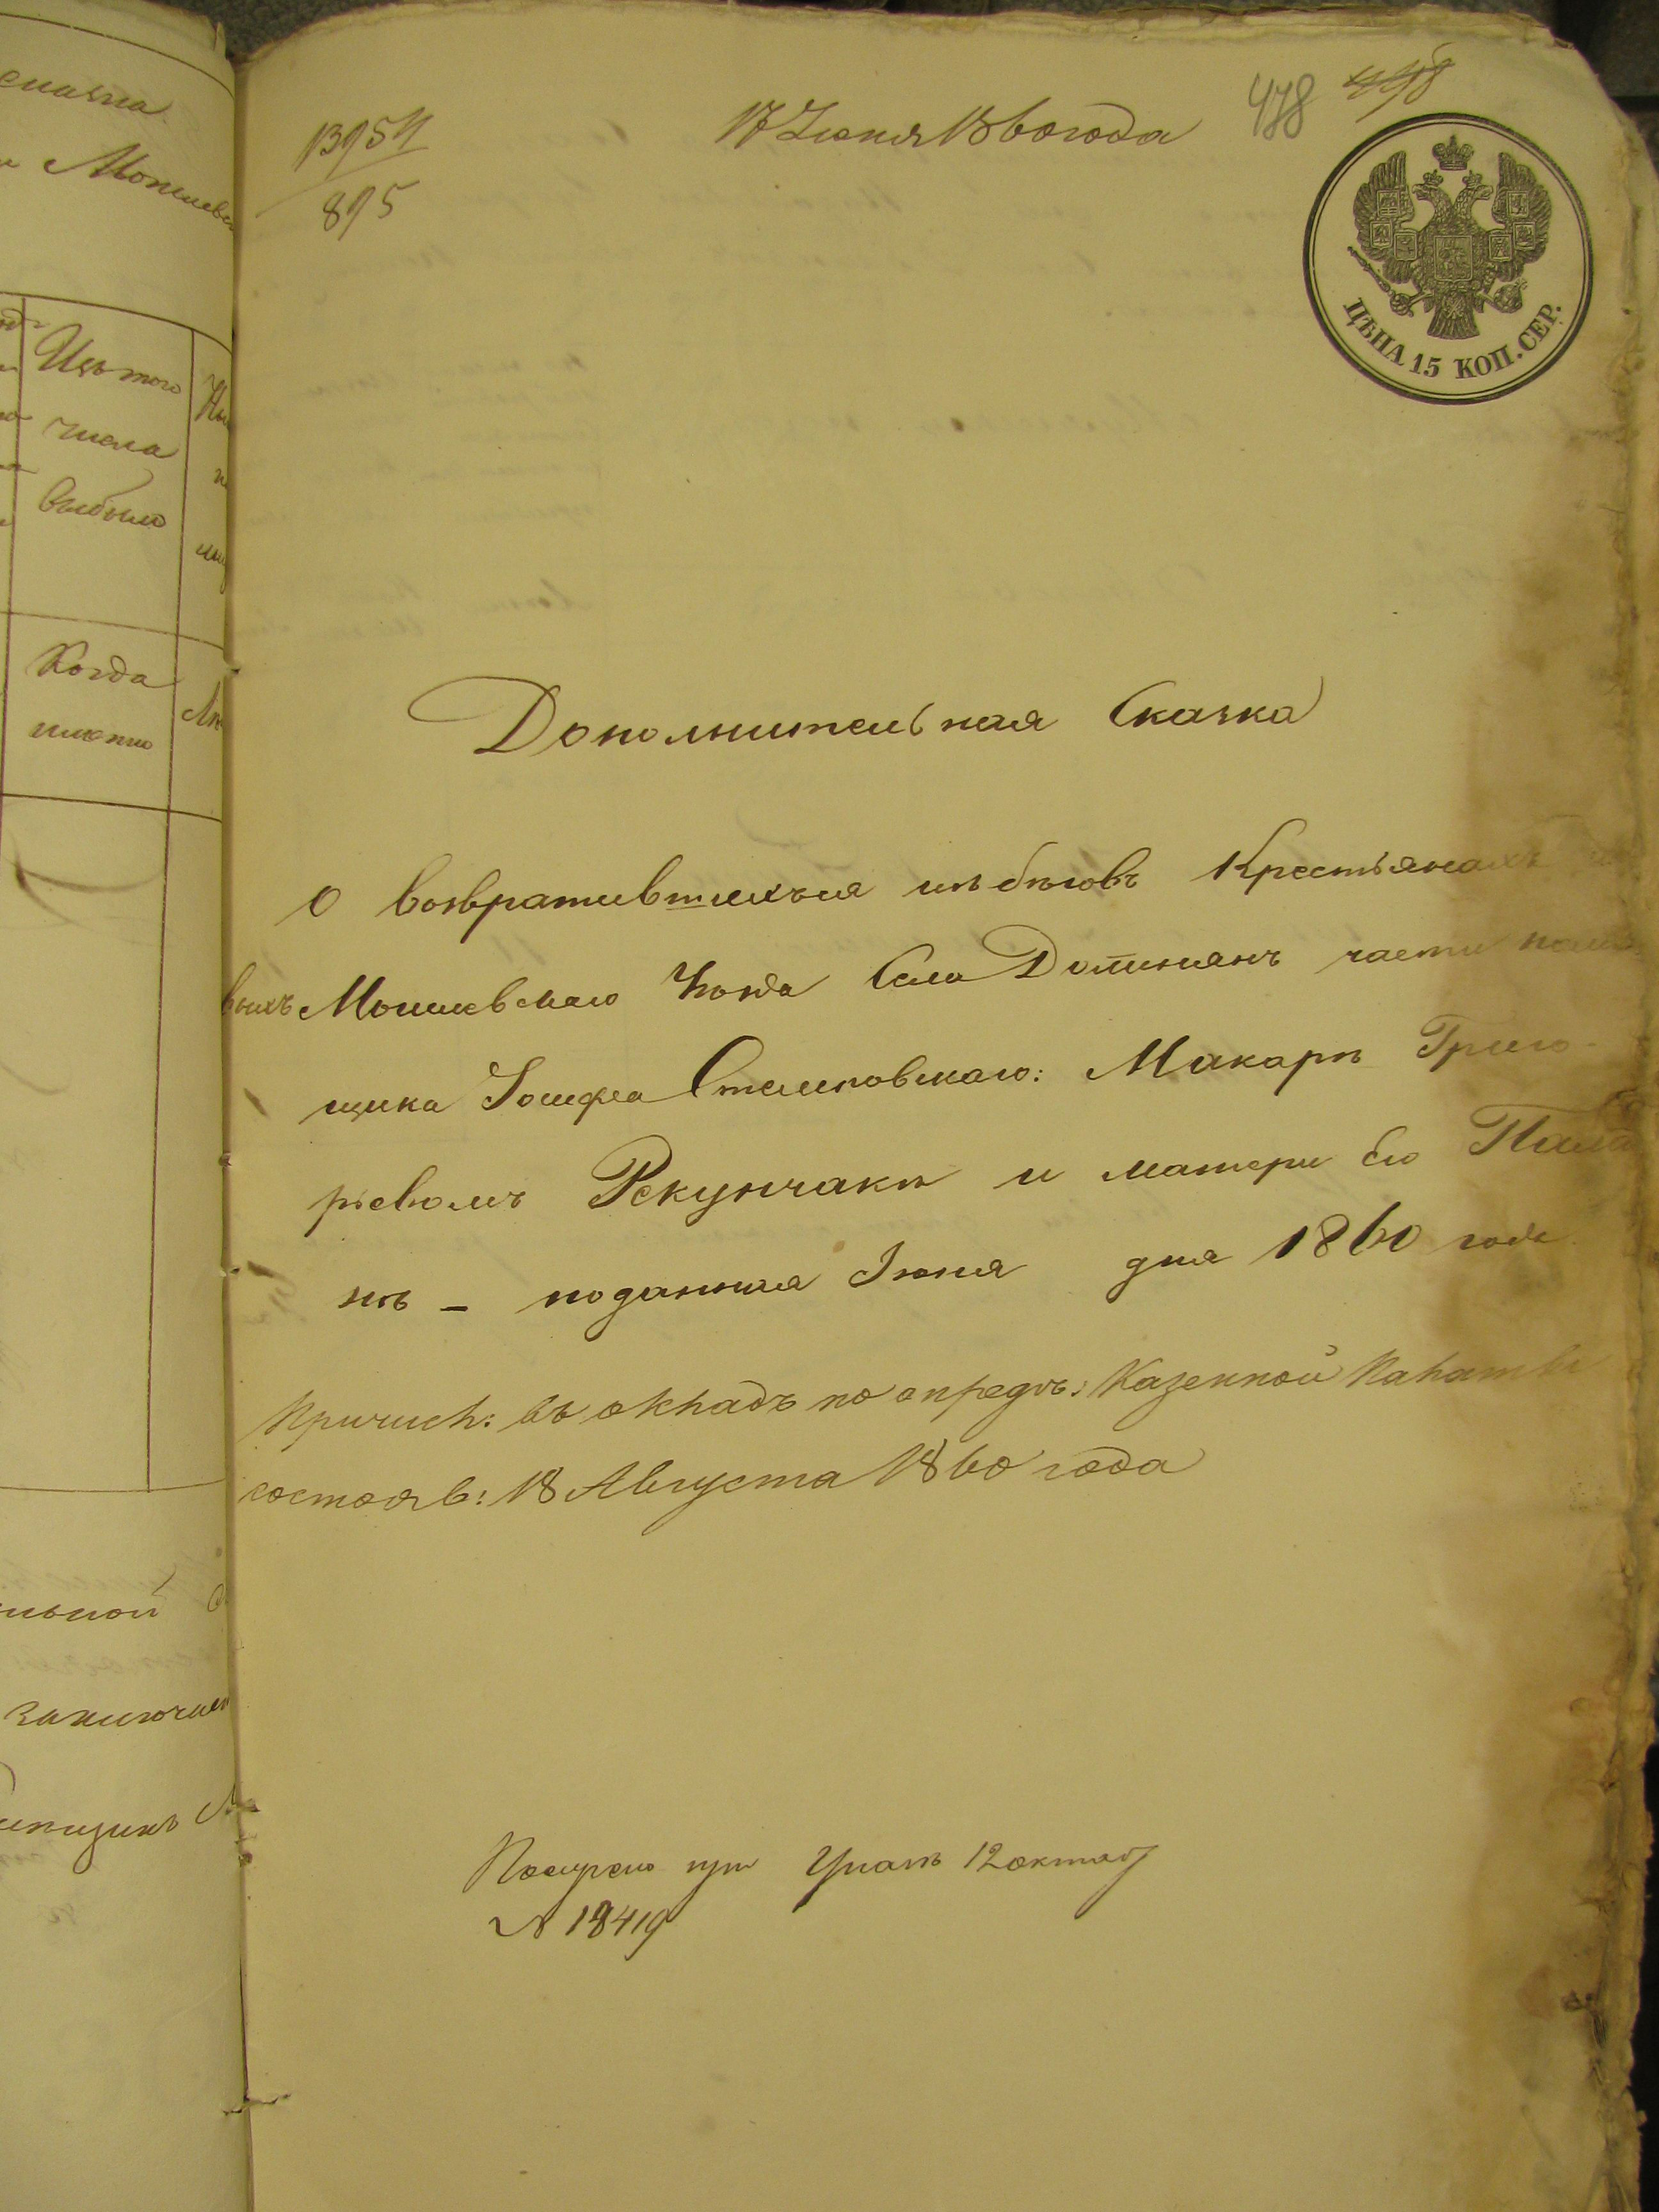 сказка
Могилевс
Изъ того
числа
выбыло
Когда
именно
13954
895
17 Іюня 1860 года
478 498
ЦѢНА 15 КОП. СЕР.
Дополнительная Сказка
О возвратившихъся изъ бѣговъ Крестьянахъ
выхъ Могилевскаго Уѣзда Села части помѣ
щика Іосифа Стемповскаго: Макарѣ Григо-
рьевомъ Рекунчакѣ и матери Его
нѣ - поданная Іюня дня 1860 года
Причисл: въ окладъ по опредѣ: Казенной Палаты
состояв: 18 Августа 1860 года
12 октяб
№ 18419